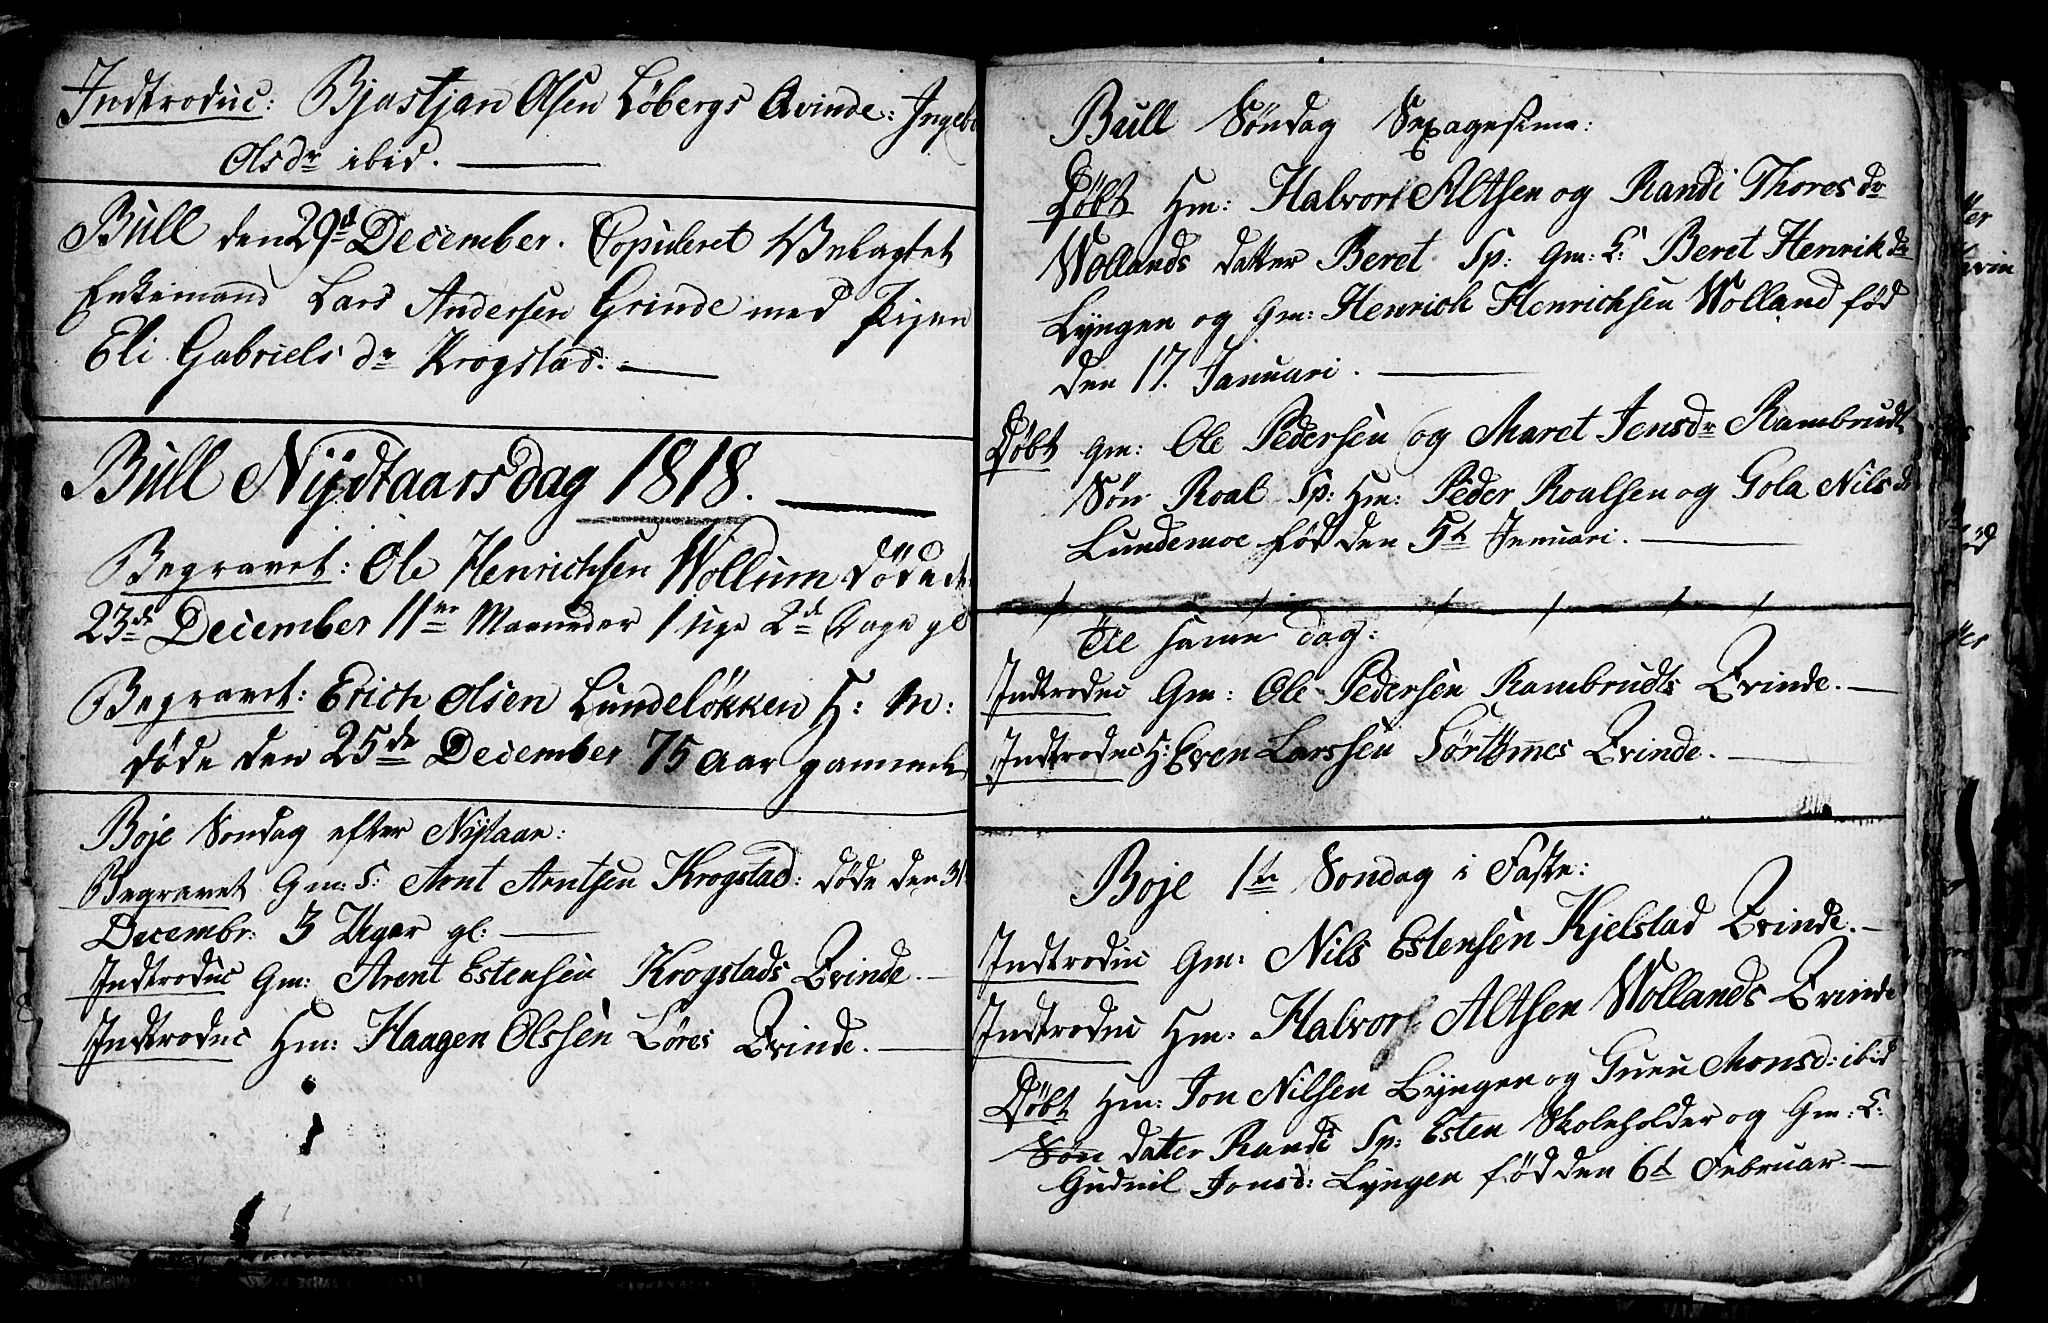 Indtroduc: Bjastjan Olsen Löbergs Qvinde: Ingeb
Olsdr ibid.
Bull den 29d December. Copuleret
Enkemand Lars Andersen Grinde med Pigen
Eli Gabriels dr Krogstad.
Bull Nydtaarsdag 1818.
Begravet: Ole Henrichsen Wollum döde d
23de December 11ve Maaneder 1 uge 2de Dage gl
Begravet: Erich Olsen Lundelökken H: M:
döde den 25de December 75 aar gammel
Boje Söndag efter Nytaar:
Begravet Gm: S: Arnt Arntsen Krogstad: döde den 31
Decembr: 3 Uger gl:
Indtroduc Gm: Arent Estensen Krogstads Qvinde.
Indtroduc Hm: Haagen Olssen Löres Qvinde.
Bull Söndag Sexagesima:
Döbt Hm: Halvor Altsen og Randi Thoresdr
Wollands datter Beret Sp: Gm: L: Beret Henrikdr
Lyngen og Gm: Henrich Henrichsen Wolland fød
den 17. Januari.
Döbt Gm: Ole Pedersen og Maret Jensdr Rambrudt
Sön Roal Sp: Hm: Peder Roalsen og Gola Nilsd
Lundemoe fød den 5t Januari.
Til samme dag:
Indtroduc Gm: Ole Pedersen Rambrudts Qvinde.
Indtroduc H: Even Larssen Sörtömes Qvinde.
Boje 1te Söndag i Faste:
Indtroduc Gm: Nils Estensen Kjelstad Qvinde.
Indtroduc Hm: Halvor Altsen Wollands Qvinde
Döbt Hm: Jon Nilsen Lyngen og Guru Monsd: ibid
Sön datter Randi Sp: Esten Skoleholder og Gm: L:
Gudnil Jonsd: Lyngen fød den 6t Februar.